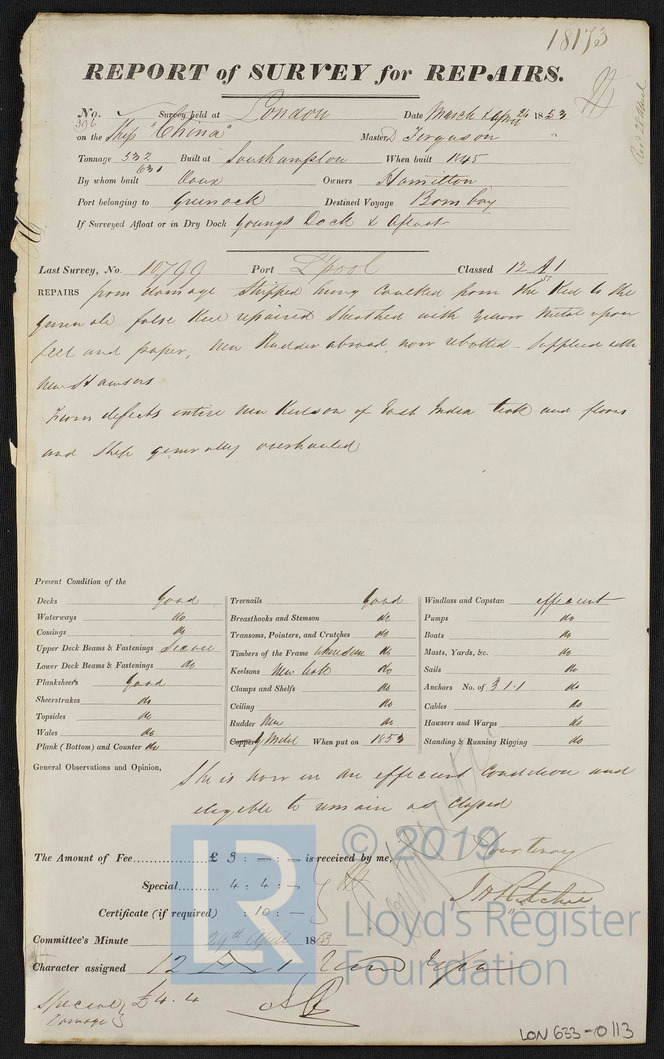 18173
REPORT of SURVEY for REPAIRS.
No. 396 Survey held at London Date March & April 26 1853
on the Ship "China" Master D Ferguson
Tonnage 532 631 Built at Southampton When built 1845
By whom built Owners Hamilton
Port belonging to Greenock Destined Voyage Bombay
If Surveyed Afloat or in Dry Dock Youngs Dock & Afloat
Last Survey, No. 10799 Port L'pool Classed 12 A 1
REPAIRS from damage Stripped caulked from the Keel to the
Gunwale false Keel repaired Sheathed with Yellow Metal upon
felt and paper, New Rudder abroad, now rebolted - Supplied with
New Hawsers
From defects entire New Keelson of East India teak and floors
and Ship generally overhauled
Present Condition of the
Decks Good
Waterways do
Comings do
Upper Deck Beams & Fastenings Secure
Lower Deck Beams & Fastenings do
Planksheers Good
Sheerstrakes do
Topsides do
Wales do
Plank (Bottom) and Counter do
Treenails Good
Breasthooks and Stemson do
Transoms, Pointers, and Crutches do
Timbers of the Frame where seen do
Keelsons New teak do
Clamps and Shelfs do
Ceiling do
Rudder New do
Copper Y Metal When put on 1853
Windlass and Capstan efficient
Pumps do
Boats do
Masts, Yards, &c. do
Sails do
Anchors No. of 3.1.1 do
Cables do
Hawsers and Warps do
Standing & Running Rigging do
General Observations and Opinion, She is now in an efficient Condition and
eligible to remain as Classed
The Amount of Fee £ 3 : — : — is received by me, Courtenay
Special 4 : 4 : — J H Ritchie
Certificate (if required) : 10 : —
Committee's Minute 29th April 1853
Character assigned 12 A 1
Special £4.4
Damage
© 2019
LR
Lloyd's Register
Foundation
LON 633-0113